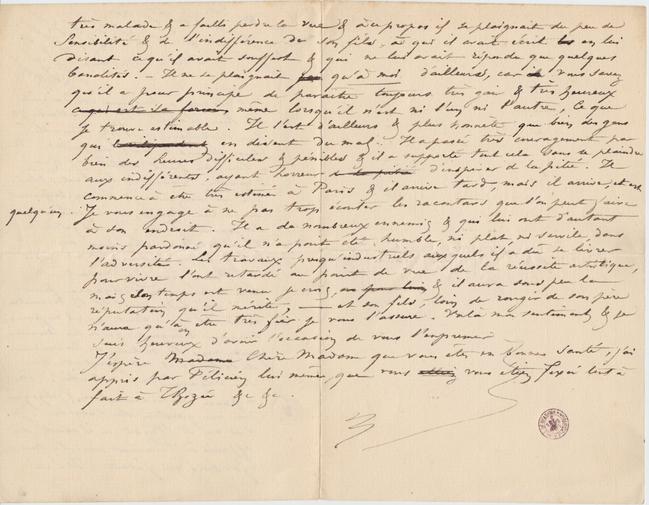 très malade & a failli perdre la vue & à ce propos il se plaignait du peu de
sensibilité & de l'indifférence de son fils, à qui il avait écrit en lui
disant ce qu'il avait souffert & qui ne lui avait répondu que quelques
banalités. – Il ne se plaignait qu'à moi d'ailleurs, car vous savez
qu'il a pour principe de paraître toujours très gai & très heureux
même lorsqu'il n'est ni l'un ni l'autre, ce que
je trouve estimable. Il l'est d'ailleurs & plus honnête que bien des gens
qui en disent du mal. Il a passé très courageusement par
bien des heures difficiles & pénibles & il a supporté tout cela sans se plaindre
aux indifférents, ayant horreur d'inspirer de la pitié. Il
commence à être très estimé à Paris & il arrive tard, mais il arrive, et est
quelqu'un. Je vous engage à ne pas trop écouter les racontars que l'on peut faire
à son endroit. Il a de nombreux ennemis & qui lui ont d'autant
moins pardonné qu'il n'a point été humble, ni plat ni servile dans
l'adversité. Les travaux presqu'industriels auxquels il a dû se livrer
pour vivre l'ont retardé au point de vue de la réussite artistique,
mais le temps est venu je crois, & il aura sous peu la
réputation qu'il mérite, – et son fils, loin de rougir de son père
n'aura qu'à en être très fier je vous l'assure. Voilà mon sentiment & je
suis heureux d'avoir l'occasion de vous l'exprimer.
J'espère Chère Madame que vous êtes en bonne santé, j'ai
appris par Félicien lui même, que vous vous étiez fixée tout à
fait à Thozée &c &c.